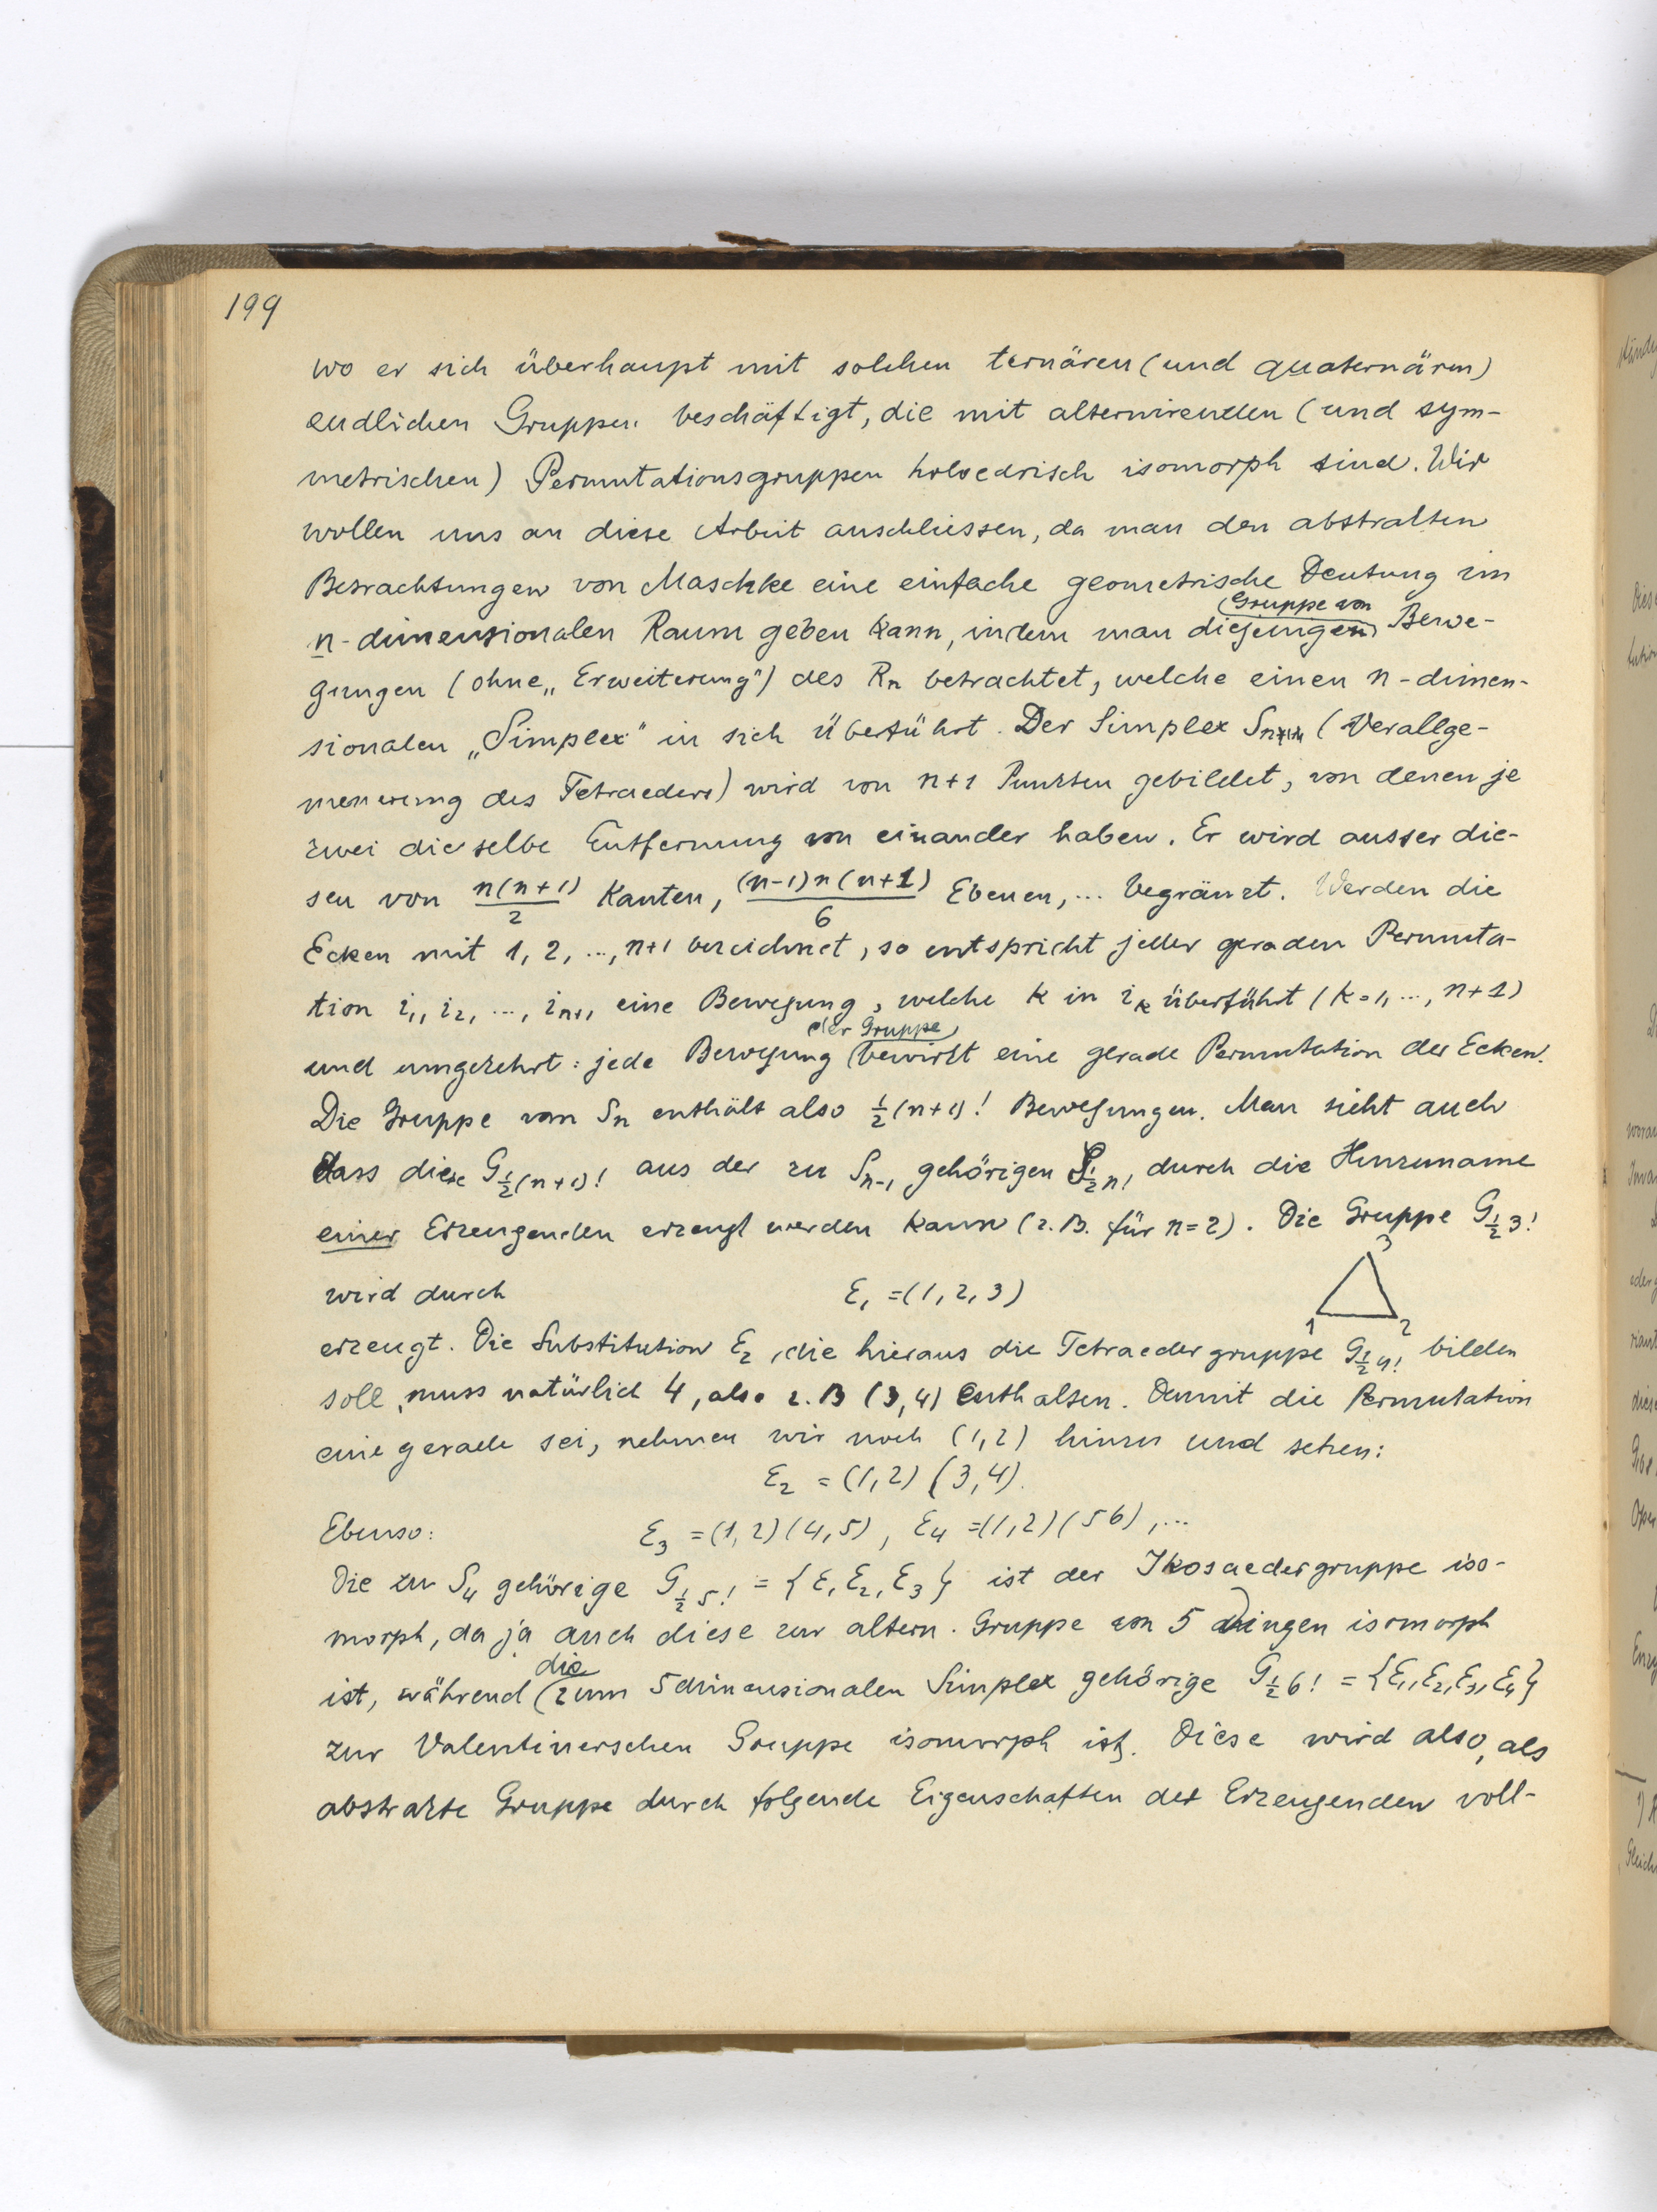 199
wo er sich überhaupt mit solchen ternären (und quaternären)
endlichen Gruppen beschäftigt, die mit alternirenden (und sym-
metrischen) Permutationsgruppen holoedrisch isomorph sind. Wir
wollen uns an diese Arbeit anschliessen, da man den abstrakten
Betrachtungen von Maschke eine einfache geometrische Deutung im
Gruppe von
n-dimensionalen Raum geben kann, indem man diejenigen Bewe-
gungen (ohne „Erweiterung") des Rn betrachtet, welche einen n-dimen-
sionalen „Simplex" in sich überführt. Der Simplex Sn (Verallge-
meinerung des Tetraeders) wird von n+1 Punkten gebildet, von denen je
zwei dieselbe Entfernung von einander haben. Er wird ausser die-
sen von n(n+1)/2 Kanten, (n-1)n(n+1)/6 Ebenen, ... begränzt. Werden die
Ecken mit 1, 2, ..., n+1 bezeichnet, so entspricht jeder geraden Permuta-
tion i1, i2, ..., in+1 eine Bewegung, welche k in ik überführt (k=1, ..., n+1)
der Gruppe
und umgekehrt: jede Bewegung bewirkt eine gerade Permutation der Ecken.
Die Gruppe von Sn enthält also ½(n+1)! Bewegungen. Man sieht auch
dass diese G½(n+1)! aus der zu Sn-1 gehörigen G½n! durch die Hinzuname
einer Erzeugenden erzeugt werden kann (z.B. für n=2). Die Gruppe G½3!
3
wird durch ε1 =(1,2,3)
1 2
erzeugt. Die Substitution ε2, die hieraus die Tetraedergruppe G½4! bilden
soll, muss natürlich 4, also z.B (3,4) enthalten. Damit die Permutation
eine gerade sei, nehmen wir noch (1,2) hinzu und setzen:
ε2 = (1,2) (3,4).
Ebenso: ε3 =(1,2)(4,5), ε4 =(1,2)(56), ...
Die zu S4 gehörige G½5! = {ε1 ε2, ε3} ist der Ikosaedergruppe iso-
morph, da ja auch diese zur altern. Gruppe von 5 Dingen isomorph
die
ist, während zum 5dimensionalen Simplex gehörige G½6! = {ε1, ε2, ε3, ε4}
zur Valentinerschen Gruppe isomorph ist. Diese wird also, als
abstrakte Gruppe durch folgende Eigenschaften der Erzeugenden voll-